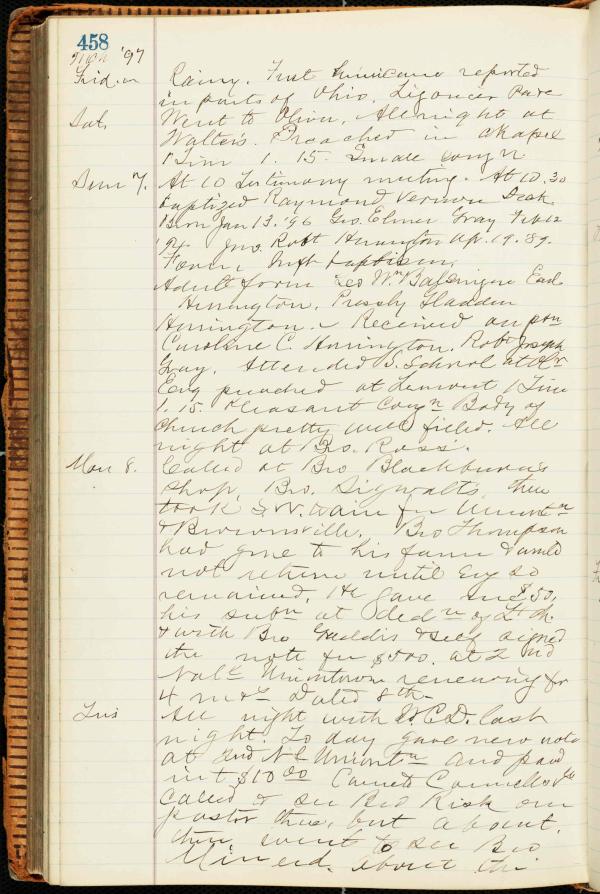 458
'97
Frid.
Rainy. First hurricane reported
in parts of Ohio. Ligonier Pa
Sat.
Went to Oliver. All night at
Walter's. Preached in chapel
1 Tim 1. 15. Small congn
Sun 7.
At 10 Testimony meeting. At 10.30
baptized Raymond Vernon
Born Jan 13. '96 Geo. Elmer Gray
Jno. Robt Herrington Ap. 19. 89.
Inft baptism
Adult form Geo Wm Earl
Herrington, Pressly Gladden
Herrington. Received on
Caroline C. Herrington. Robt Joseph
Gray. Attended S. School at
Evg preached at Lemont 1 Tim
1. 15. Pleasant Congn Body of
church pretty well filled. All
night at Bro. Ross'.
Mon 8.
Called at Bro Blackburns
shop, Bro. Sigwalts, then
took S.W. train for Uniontn
& Brownsville. Bro Thompson
had gone to his farm & would
not return until Evg so
remained. He gave me $50,
his subn at dedn of
& with Bro Gaddis & self signed
the note for $500. at 2nd
Natl Uniontown renewing for
4 m Dated 8th
Tues
All night with W.C.D. last
night. To day gave new note
at 2nd N B Uniontn and paid
int $10 00 Came to Connellsv
called to see Bro Risk our
pastor there, but absent.
then went to see Bro
about the